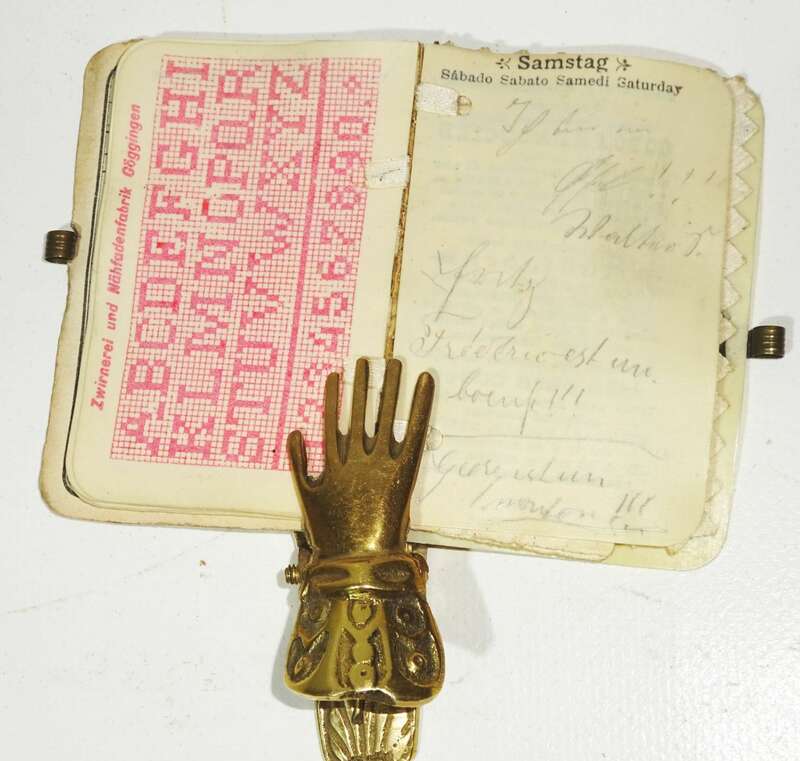 Zwirnerei und Nähfadenfabrik Göggingen
ABCDEFGHI
KLMNOPQR
STUVWXYZ
1234567890
Samstag
Sábado Sabato Samedi Saturday
Ich bin ein
!!!
Walter
Fritz
Frédéric est un
boeuf!!!
Georg est un
mouton!!!